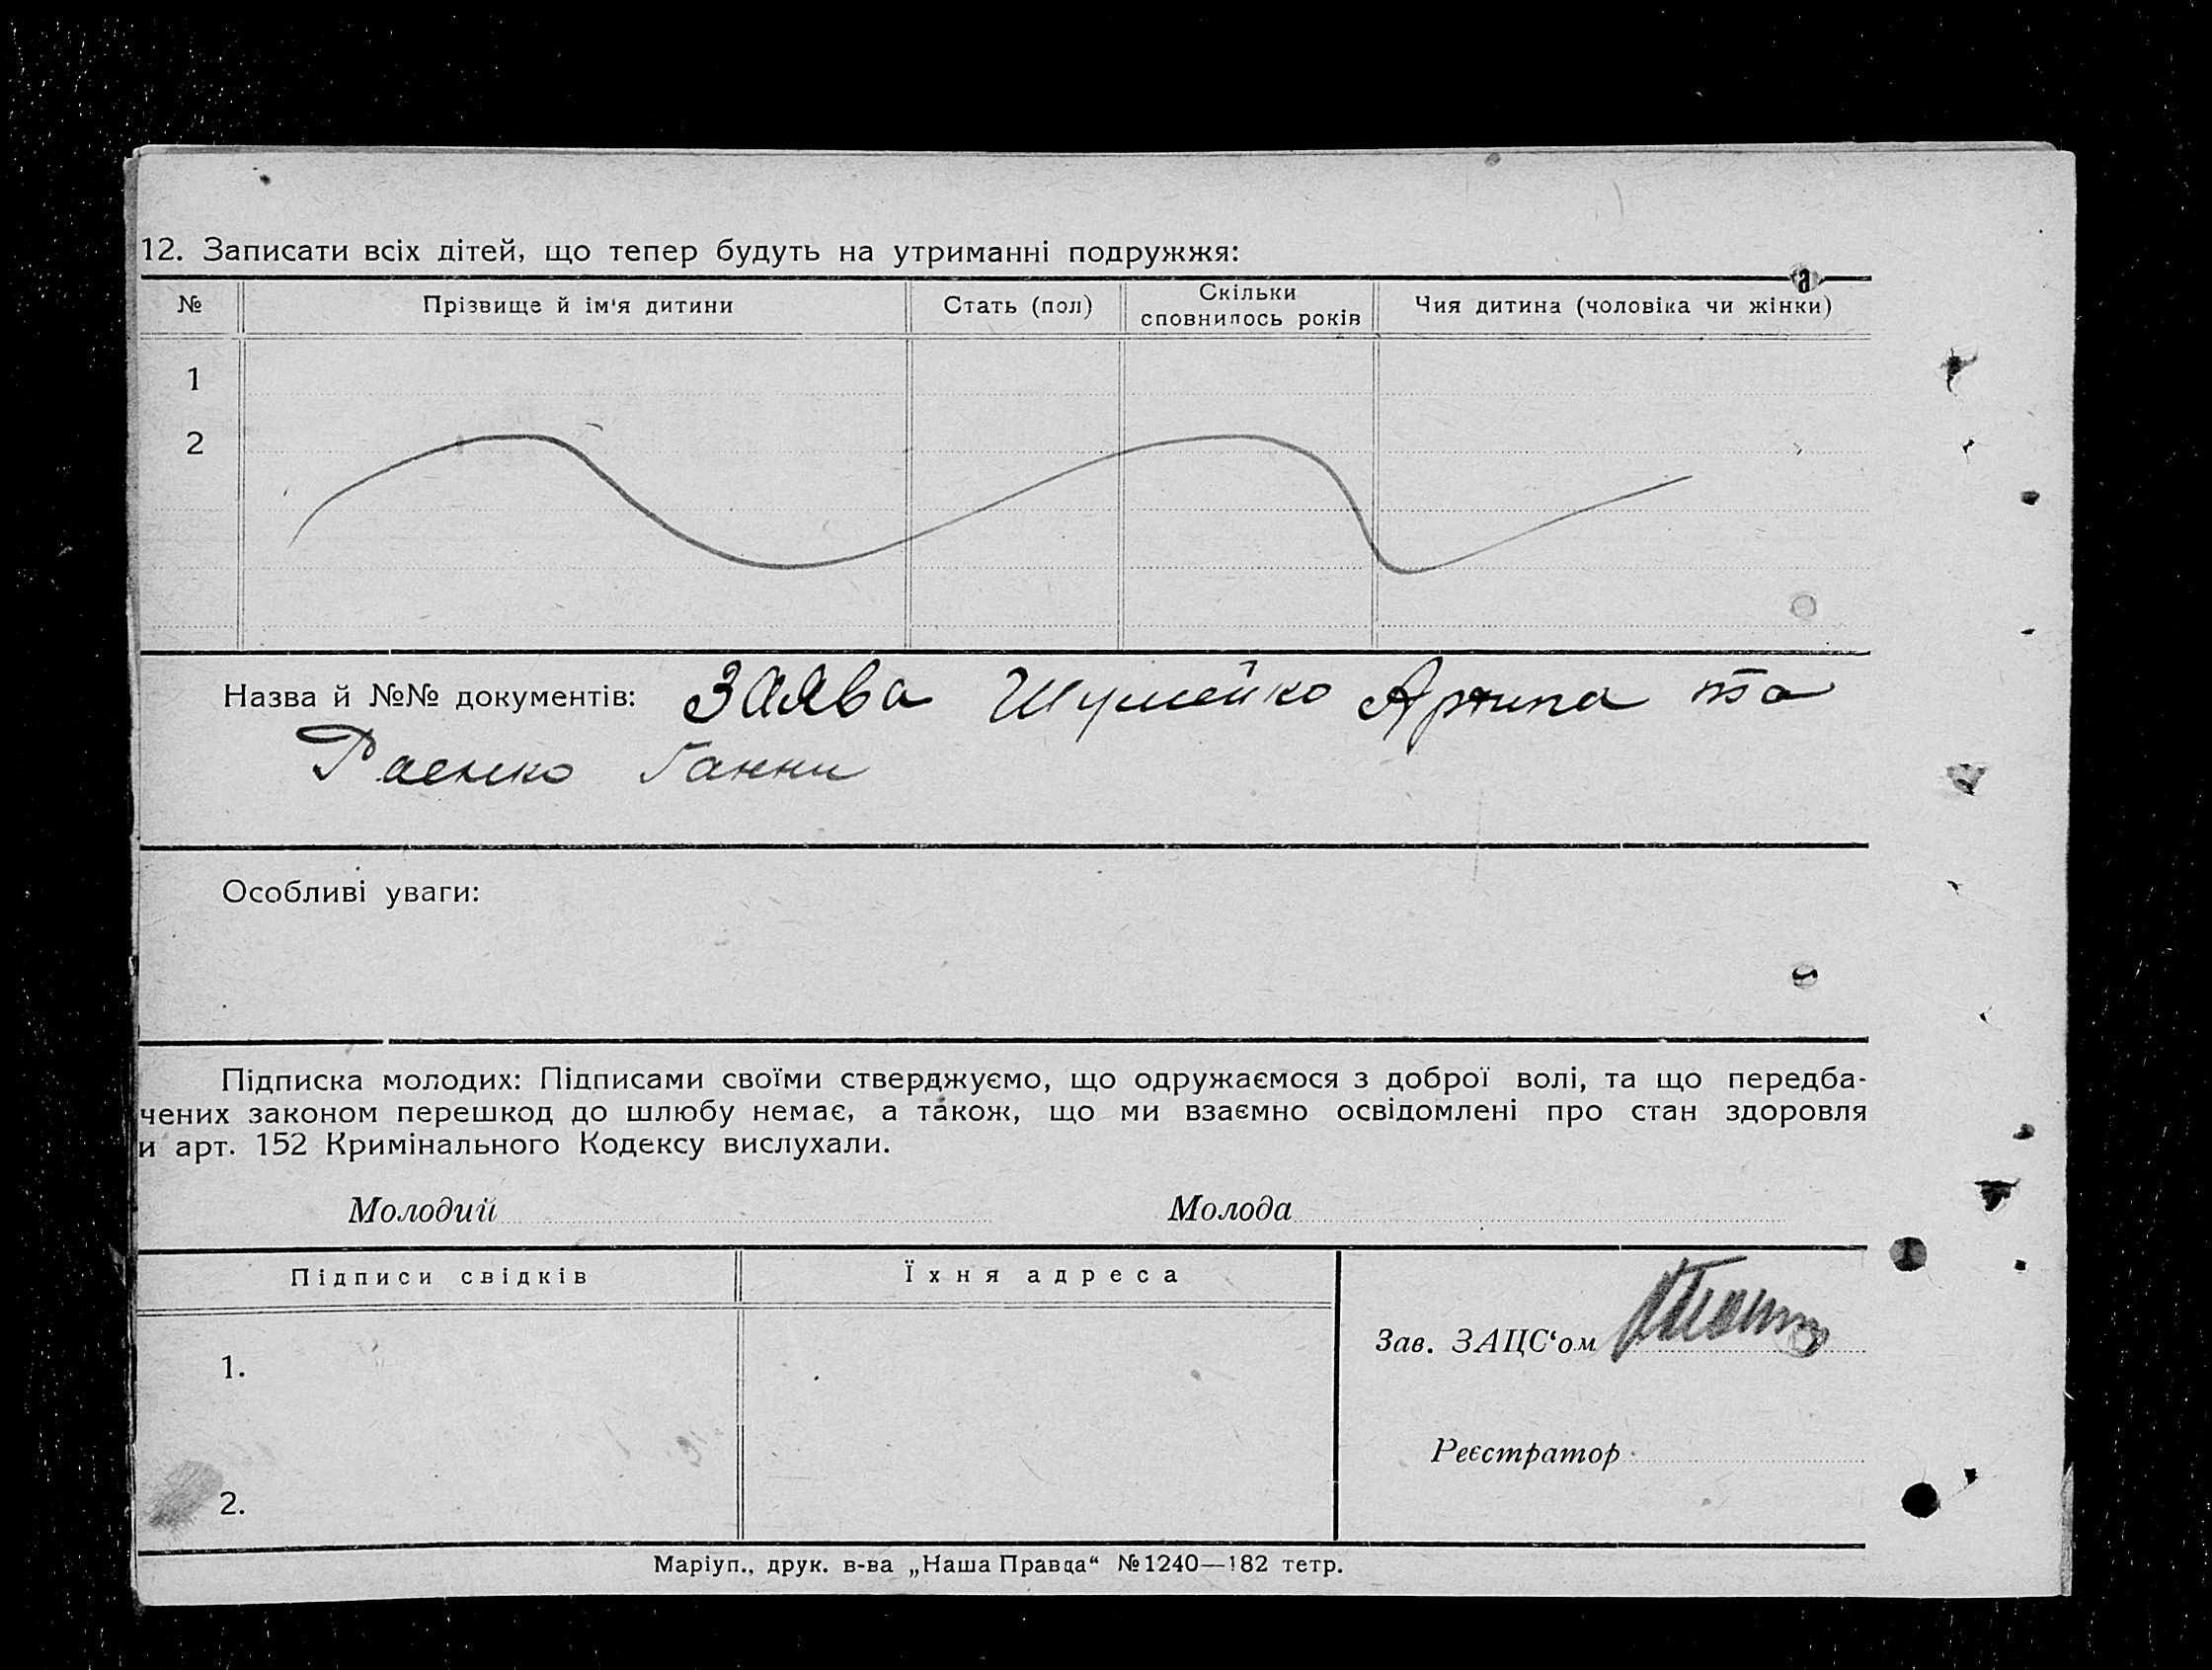 12. Записати всіх дітей, що тепер будуть на утриманні подружжя:
№ Прізвище й ім'я дитини Стать (пол) Скільки сповнилось років Чия дитина (чоловіка чи жінки)
1
2
Назва й №№ документів: Заява Шумейко Архипа та
Раенко Ганни
Особливі уваги:
Підписка молодих: Підписами своїми стверджуємо, що одружаємося з доброї волі, та що передба-
чених законом перешкод до шлюбу немає, а також, що ми взаємно освідомлені про стан здоровля
и арт. 152 Кримінального Кодексу вислухали.
Молодий Молода
Підписи свідків Їхня адреса
Зав. ЗАЦС‘ом
1.
Реєстратор
2.
Маріуп., друк. в-ва „Наша Правда“ №1240—182 тетр.